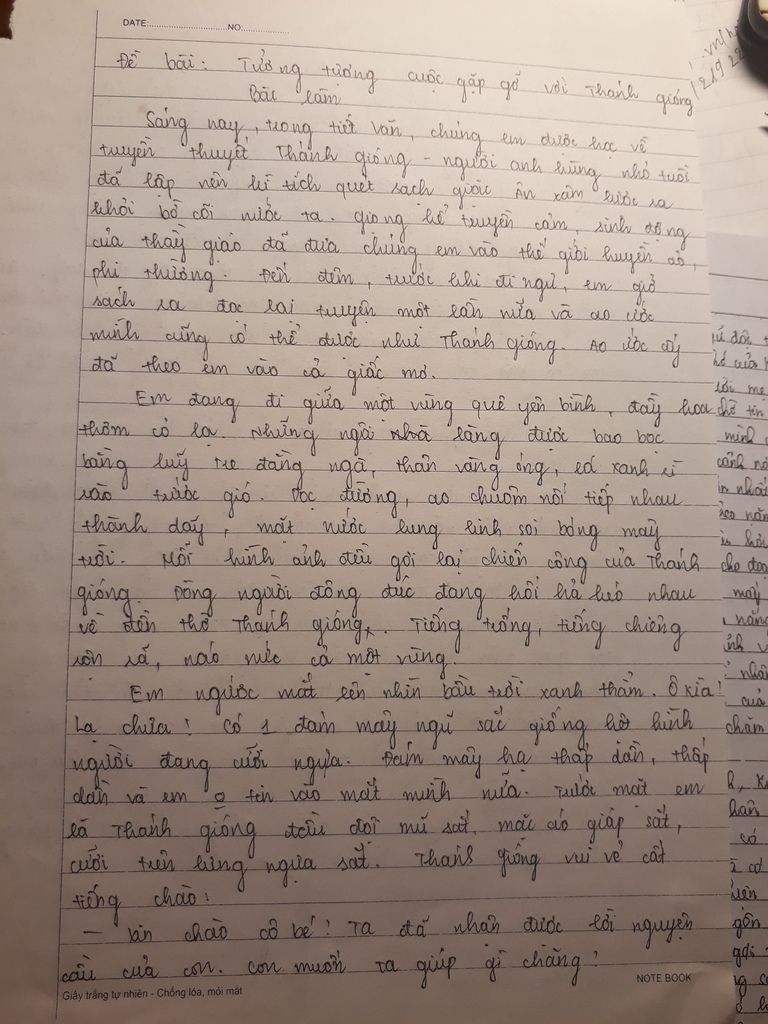 DATE:........................NO:................
Đề bài: Tưởng tượng cuộc gặp gỡ với Thánh gióng
Bài làm
Sáng nay, trong tiết văn, chúng em được học về
truyền thuyết Thánh gióng - người anh hùng nhỏ tuổi
đã lập nên kì tích quét sạch giặc Ân xâm lược ra
khỏi bờ cõi nước ta. giọng kể truyền cảm, sinh động
của thầy giáo đã đưa chúng em vào thế giới huyền ảo,
phi thường. Đến đêm, trước khi đi ngủ, em giở
sách ra đọc lại truyện một lần nữa và ao ước
mình cũng có thể được như Thánh gióng. Ao ước ấy
đã theo em vào cả giấc mơ.
Em đang đi giữa một vùng quê yên bình, đầy hoa
thơm cỏ lạ. Những ngôi làng được bao bọc
bằng luỹ tre đằng ngà, thân vàng óng, lá xanh rì
rào trước gió. Dọc đường, ao chuôm nối tiếp nhau
thành dãy, mặt nước lung linh soi bóng mây
trời. Mỗi hình ảnh đều gợi lại chiến công của Thánh
gióng. Dòng người đông đúc đang hối hả kéo nhau
về đền thờ Thánh gióng. Tiếng trống, tiếng chiêng
rộn rã, náo nức cả một vùng.
Em ngước mắt lên nhìn bầu trời xanh thẳm. Ô kìa!
Lạ chưa! Có 1 đám mây ngũ sắc giống hệt hình
người đang cưỡi ngựa. Đám mây hạ thấp dần, thấp
dần và em o tin vào mắt mình nữa. Trước mắt em
là Thánh gióng đầu đội mũ sắt, mặc áo giáp sắt,
cưỡi trên lưng ngựa sắt. Thánh gióng vui vẻ cất
tiếng chào:
- Xin chào cô bé! Ta đã nhận được lời nguyện
cầu của con. Con muốn ta giúp gì chăng?
NOTE BOOK
Giấy trắng tự nhiên - Chống lóa, mỏi mắt